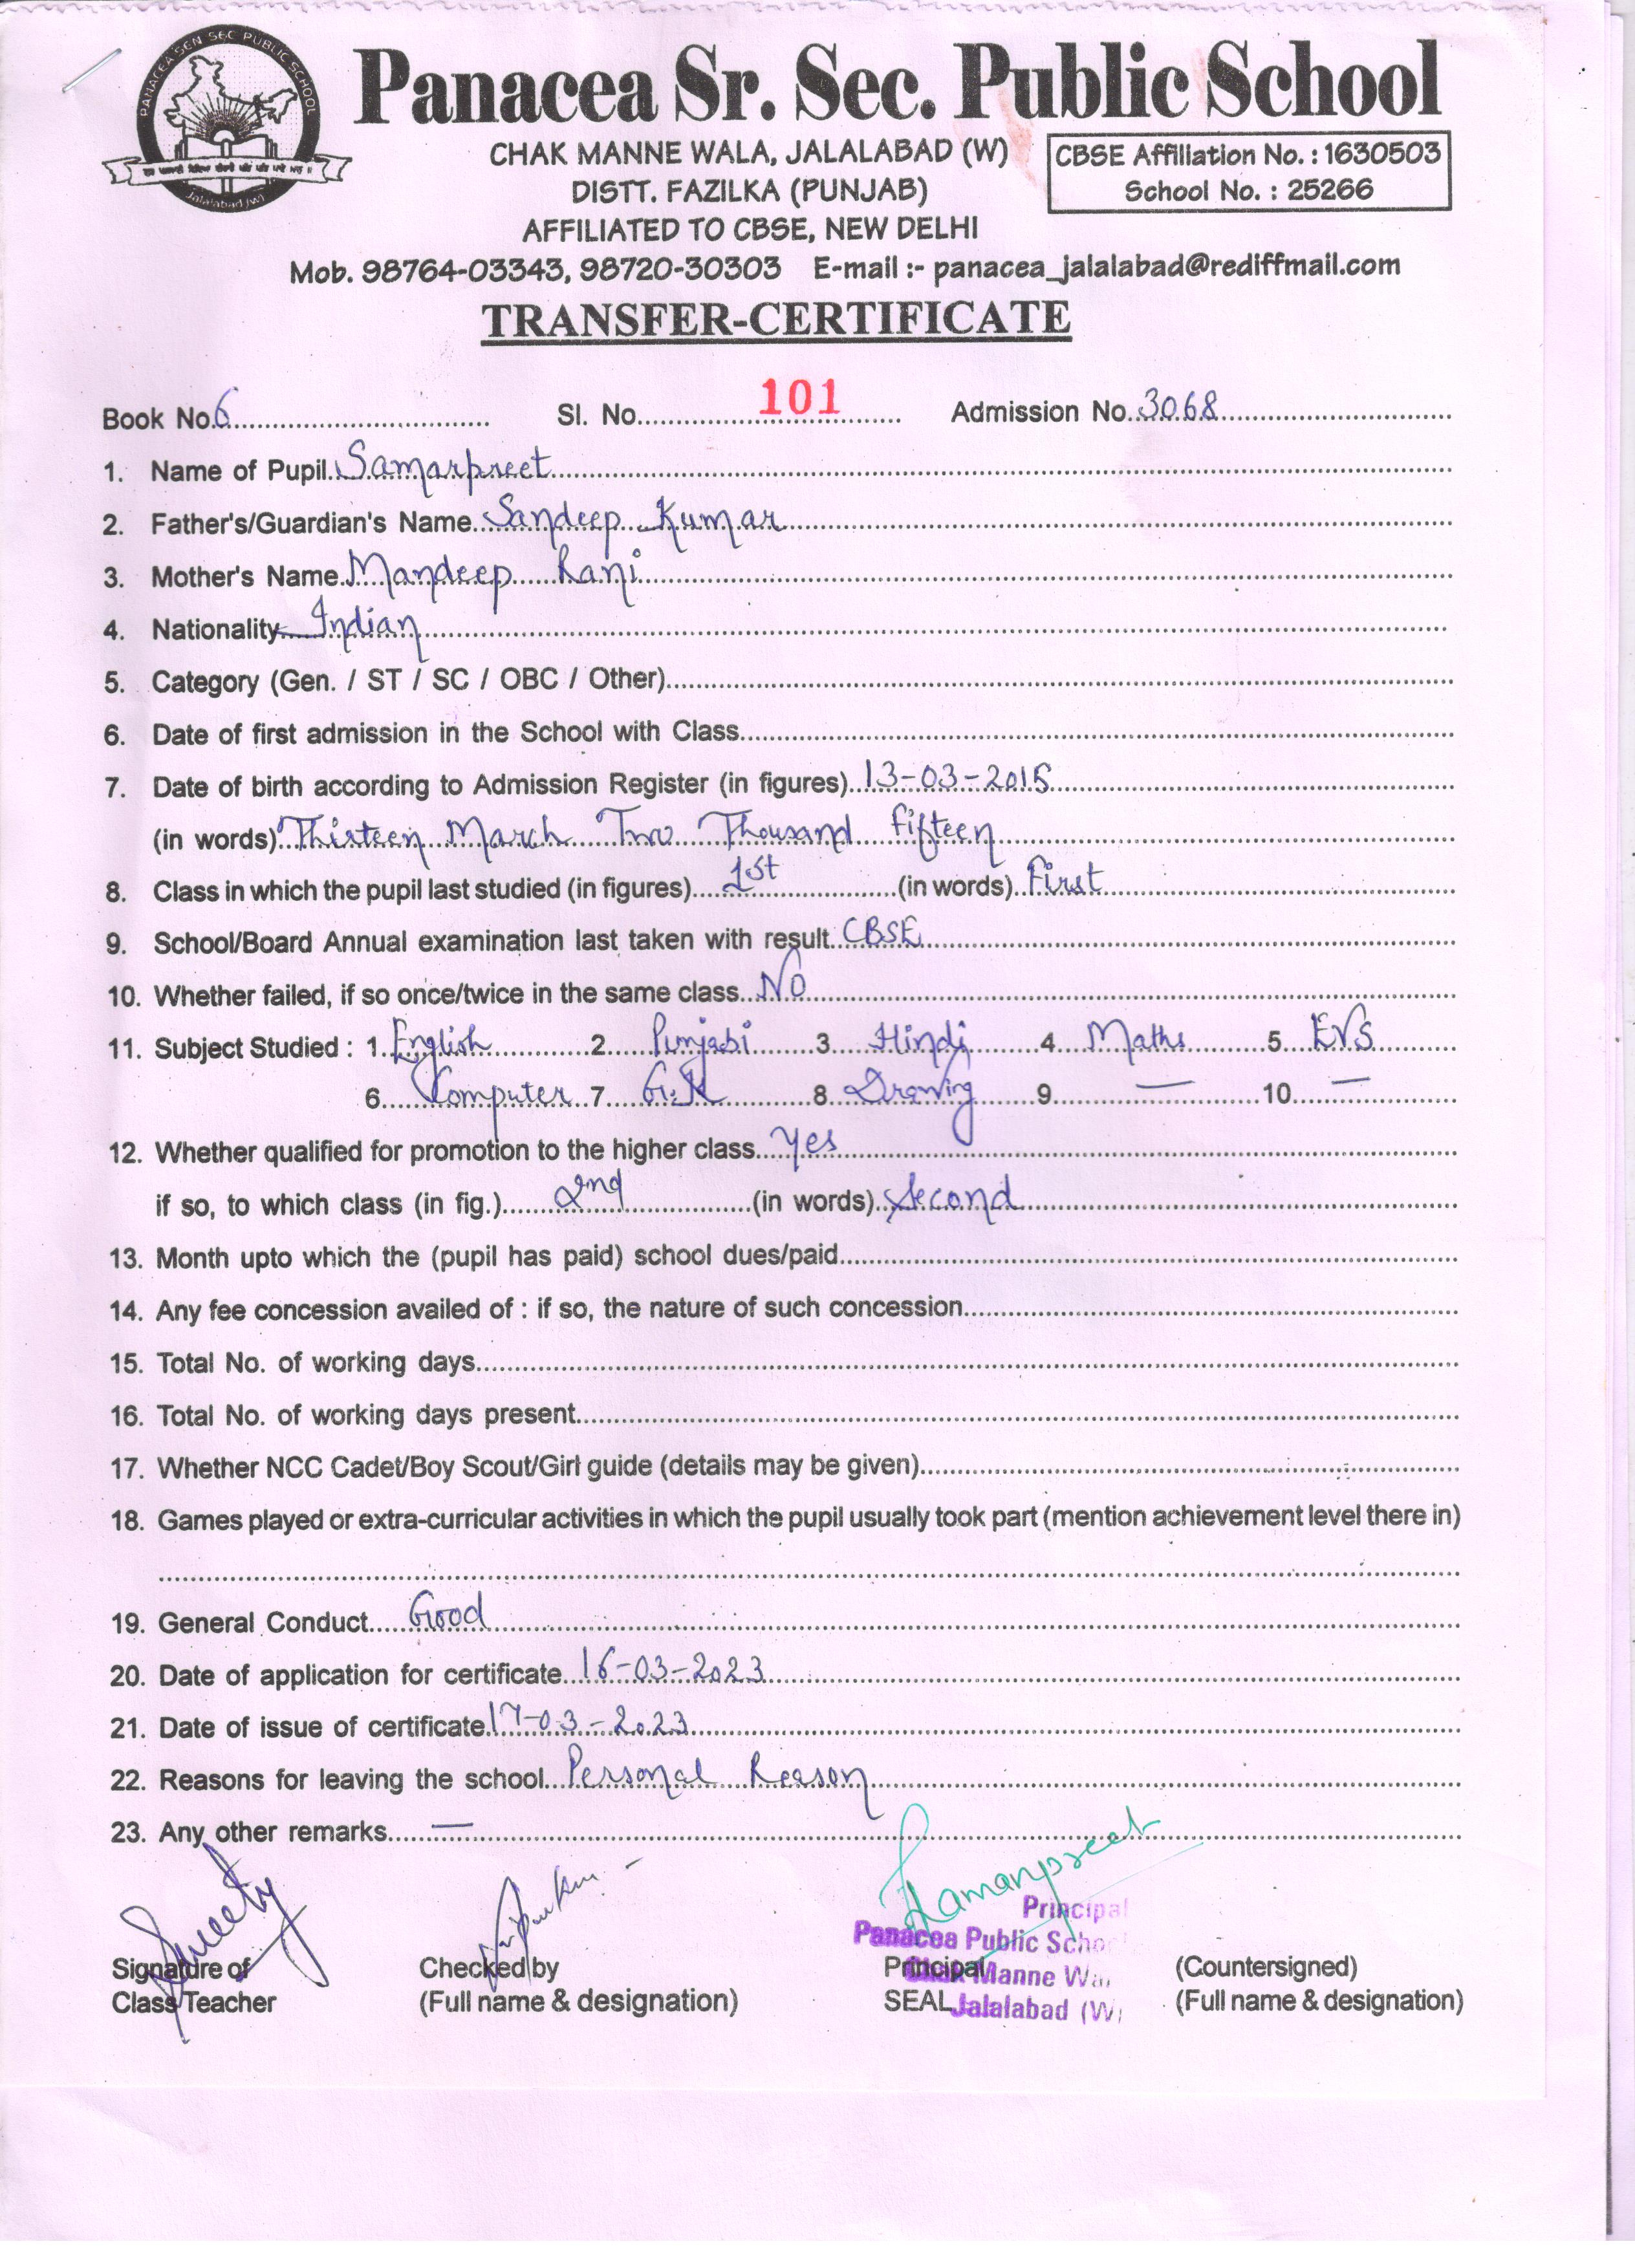 PANACEA SEN SEC PUBLIC SCHOOL
Jalalabad (W)
Panacea Sr. Sec. Public School
CHAK MANNE WALA, JALALABAD (W)
DISTT. FAZILKA (PUNJAB)
AFFILIATED TO CBSE, NEW DELHI
CBSE Affiliation No. : 1630503
School No. : 25266
Mob. 98764-03343, 98720-30303 E-mail :- panacea_jalalabad@rediffmail.com
TRANSFER-CERTIFICATE
Book No. 6 Sl. No. 101 Admission No. 3068
1. Name of Pupil Samarpreet
2. Father's/Guardian's Name Sandeep Kumar
3. Mother's Name Mandeep Rani
4. Nationality Indian
5. Category (Gen. / ST / SC / OBC / Other)
6. Date of first admission in the School with Class
7. Date of birth according to Admission Register (in figures) 13-03-2015
(in words) Thirteen March Two Thousand fifteen
8. Class in which the pupil last studied (in figures) 1st (in words) First
9. School/Board Annual examination last taken with result CBSE
10. Whether failed, if so once/twice in the same class No
11. Subject Studied : 1. English 2. Punjabi 3. Hindi 4. Maths 5. EVS
6. Computer 7. G.K 8. Drawing 9. — 10. —
12. Whether qualified for promotion to the higher class yes
if so, to which class (in fig.) 2nd (in words) Second
13. Month upto which the (pupil has paid) school dues/paid
14. Any fee concession availed of : if so, the nature of such concession
15. Total No. of working days
16. Total No. of working days present
17. Whether NCC Cadet/Boy Scout/Girl guide (details may be given)
18. Games played or extra-curricular activities in which the pupil usually took part (mention achievement level there in)
19. General Conduct Good
20. Date of application for certificate 16-03-2023
21. Date of issue of certificate 17-03-2023
22. Reasons for leaving the school Personal Reason
23. Any other remarks —
Sweety
Ramanpreet
Principal
Panacea Public School
Manne Wa
Jalalabad (W)
Signature of Checked by Principal (Countersigned)
Class Teacher (Full name & designation) SEAL (Full name & designation)